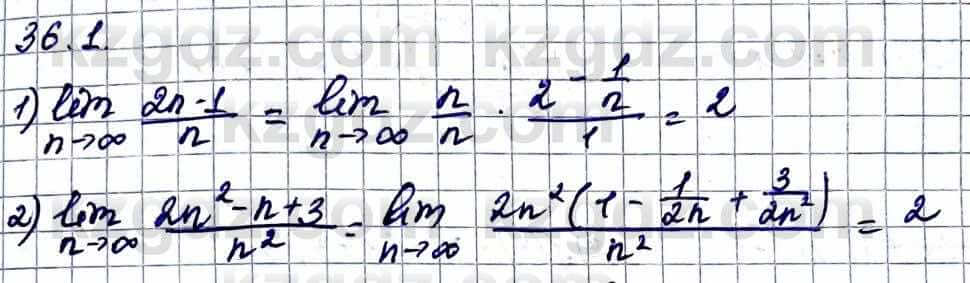 36.1.
1) lim n→∞ (2n-1)/n = lim n→∞ n/n · (2 - 1/n)/1 = 2
2) lim n→∞ (2n²-n+3)/n² = lim n→∞ 2n²(1 - 1/2n + 3/2n²)/n² = 2
kzgdz.com kzgdz.com
kzgdz.com kzgdz.com